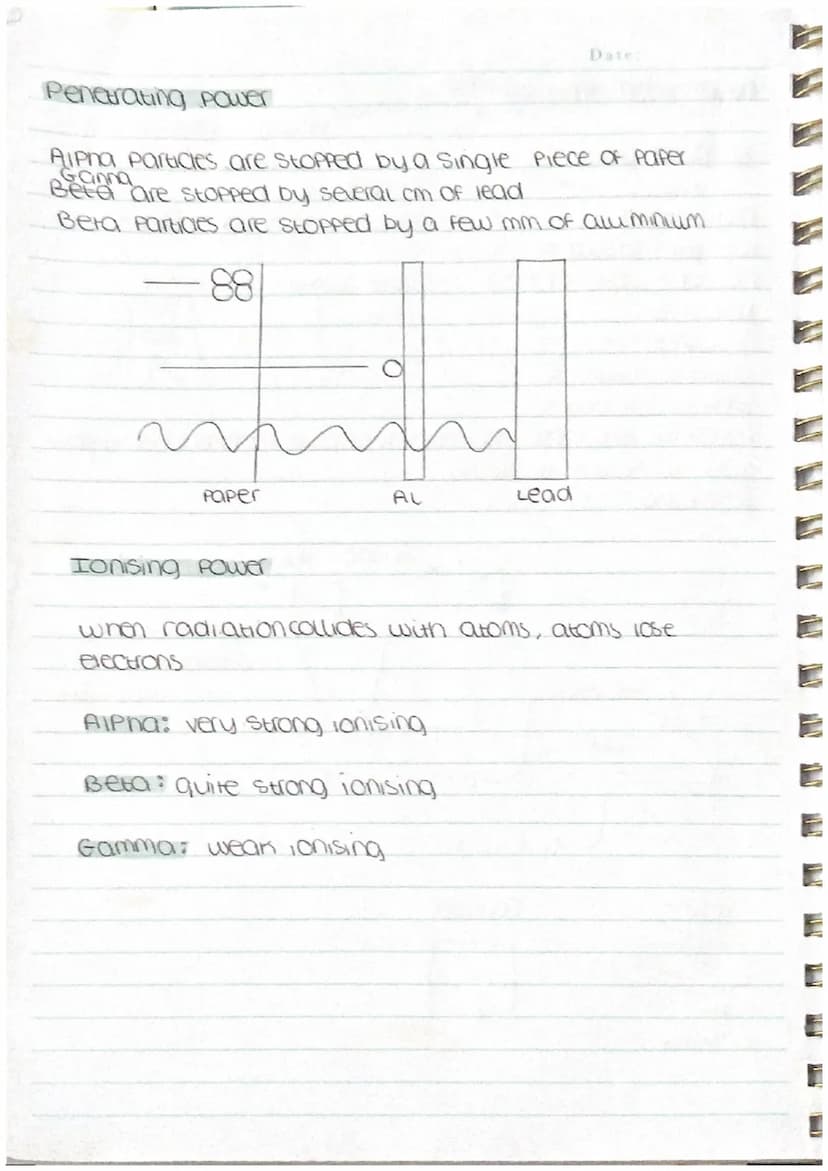 Date:
Penetrating power
Alpha particles are stopped by a single piece of paper
Gamma
Beta are stopped by several cm of lead
Beta particles are stopped by a few mm of aluminium
Paper
AL
Lead
Ionising power
when radiation collides with atoms, atoms lose
electrons
Alpha: very strong ionising
Beta: quite strong ionising
Gamma: weak ionising